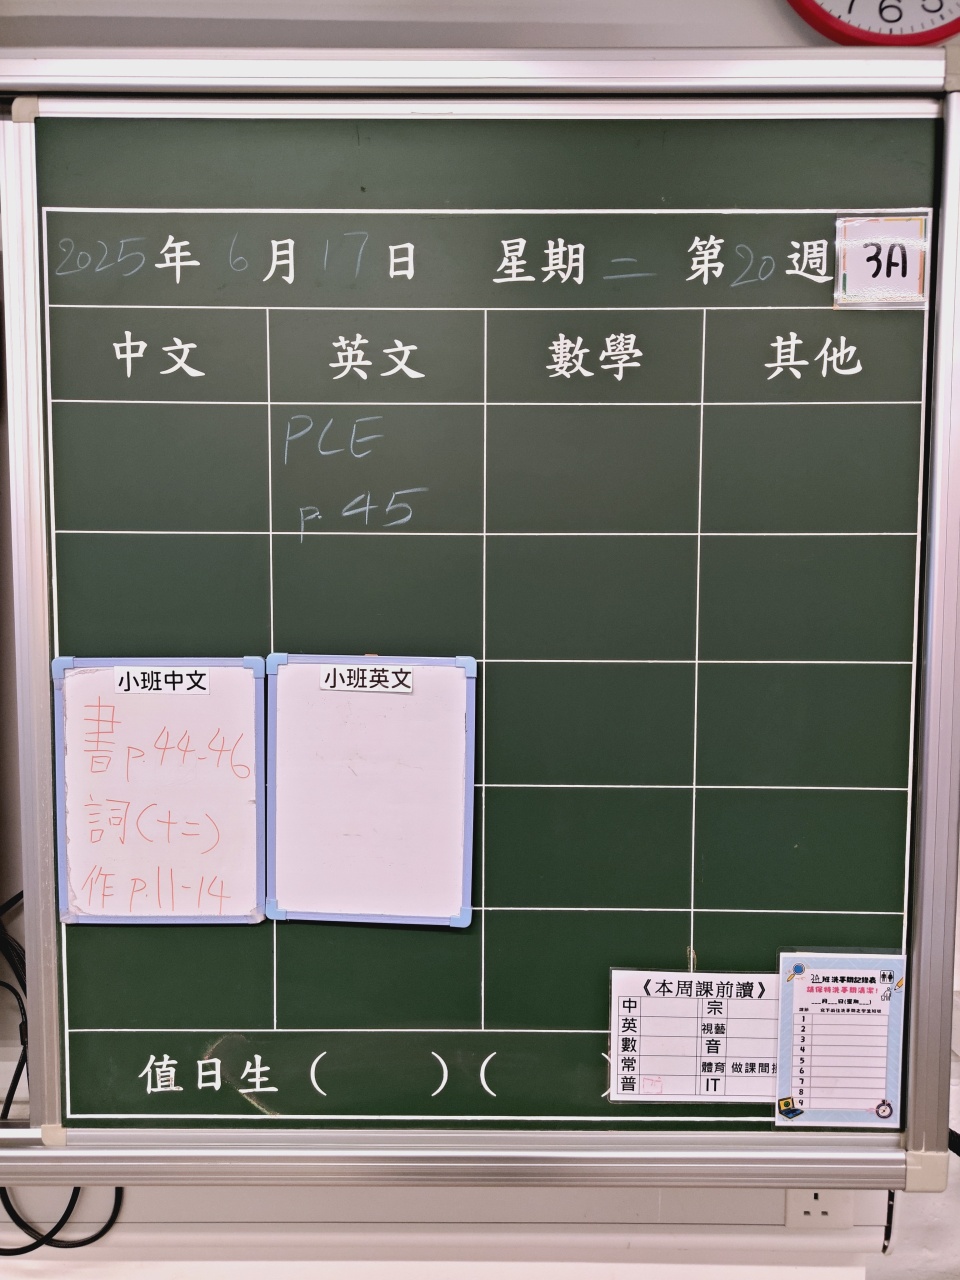 7 6 5
2025年 6月 17日 星期二 第20週 3A
中文 英文 數學 其他
PLE
p. 45
小班中文
書 p.44-46
詞(十二)
作 p.11-14
小班英文
《本周課前讀》
中 宗
英 視藝
數 音
常 體育 做課間
普 IT
3A班洗手間記錄表
請保持洗手間清潔!
__月__日(星期__)
1
2
3
4
5
6
7
8
9
值日生( )( )